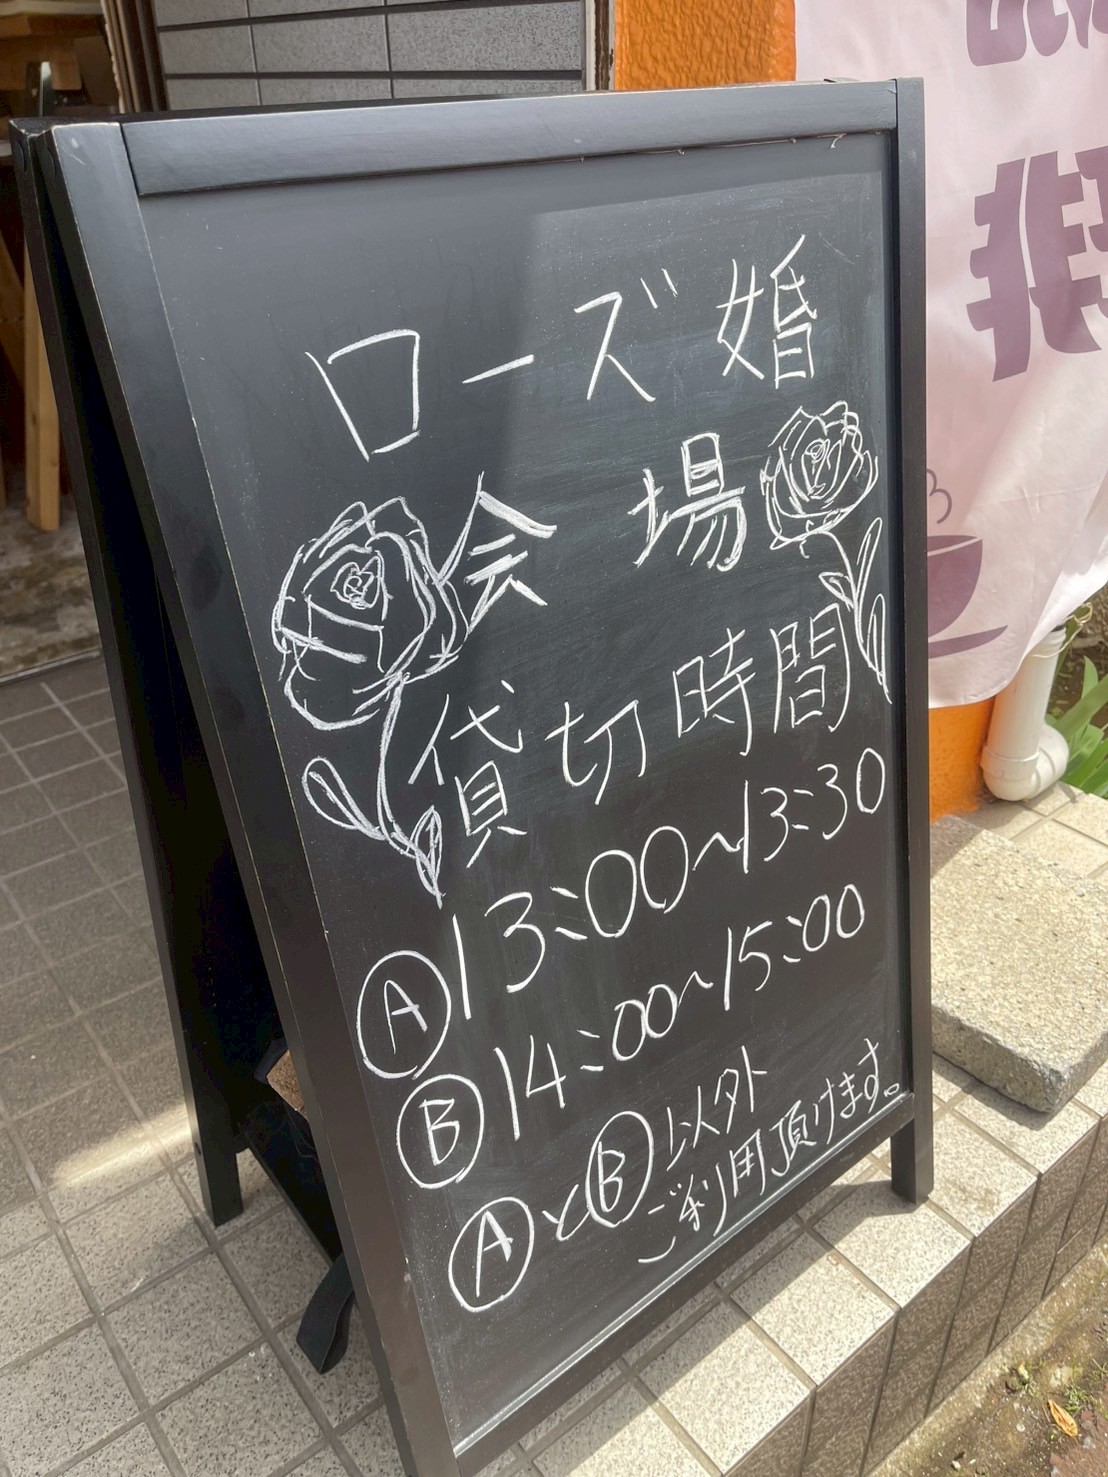 ローズ婚
会場
貸切時間
Ⓐ13:00~13:30
Ⓑ14:00~15:00
ⒶとⒷ以外
ご利用頂けます。